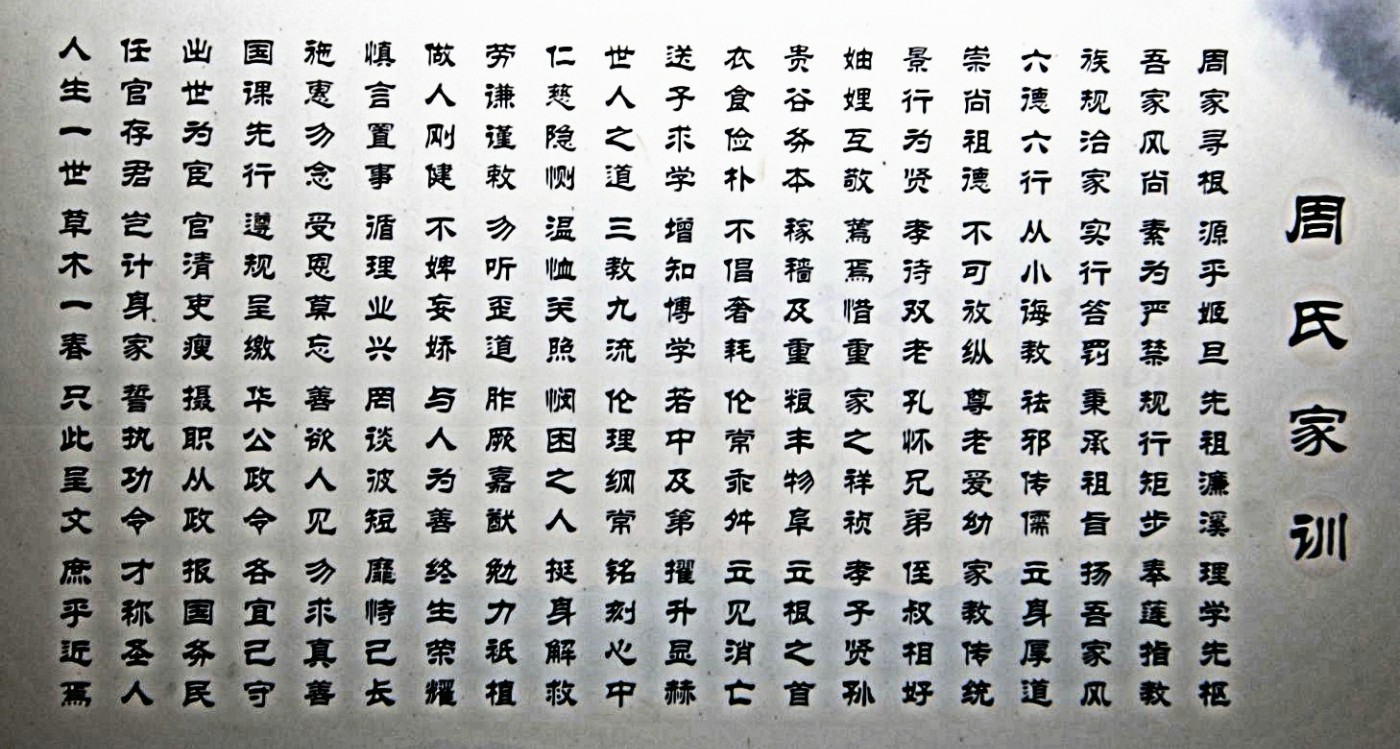 周氏家训
周家寻根源乎姬旦先祖濂溪理学先枢
吾家风尚素为严禁规行矩步奉莲指教
族规治家实行答罚秉承祖旨扬吾家风
六德六行从小诲教祛邪传儒立身厚道
崇尚祖德不可放纵尊老爱幼家教传统
景行为贤孝待双老孔怀兄弟侄叔相好
妯娌互敬蔫焉惜重家之祥祯孝子贤孙
贵谷务本稼穑及重粮丰物阜立根之首
衣食俭朴不倡奢耗伦常乖舛立见消亡
送子求学增知博学若中及第擢升显赫
世人之道三教九流伦理纲常铭刻心中
仁慈隐恻温恤关照悯困之人挺身解救
劳谦谨敕勿听歪道胙厥嘉猷勉力祗植
做人刚健不婢妄娇与人为善终生荣耀
慎言置事循理业兴罔谈彼短靡恃己长
施惠勿念受恩莫忘善欲人见勿求真善
国课先行遵规呈缴华公政令各宜己守
出世为宦官清吏瘦摄职从政报国务民
任官存君岂计身家誓执功令才称圣人
人生一世草木一春只此呈文庶乎近焉